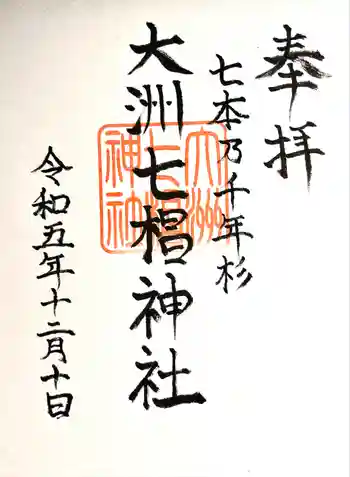 奉拝
七本乃千年杉
大洲七椙神社
大洲
七椙
神社
令和五年十二月十日